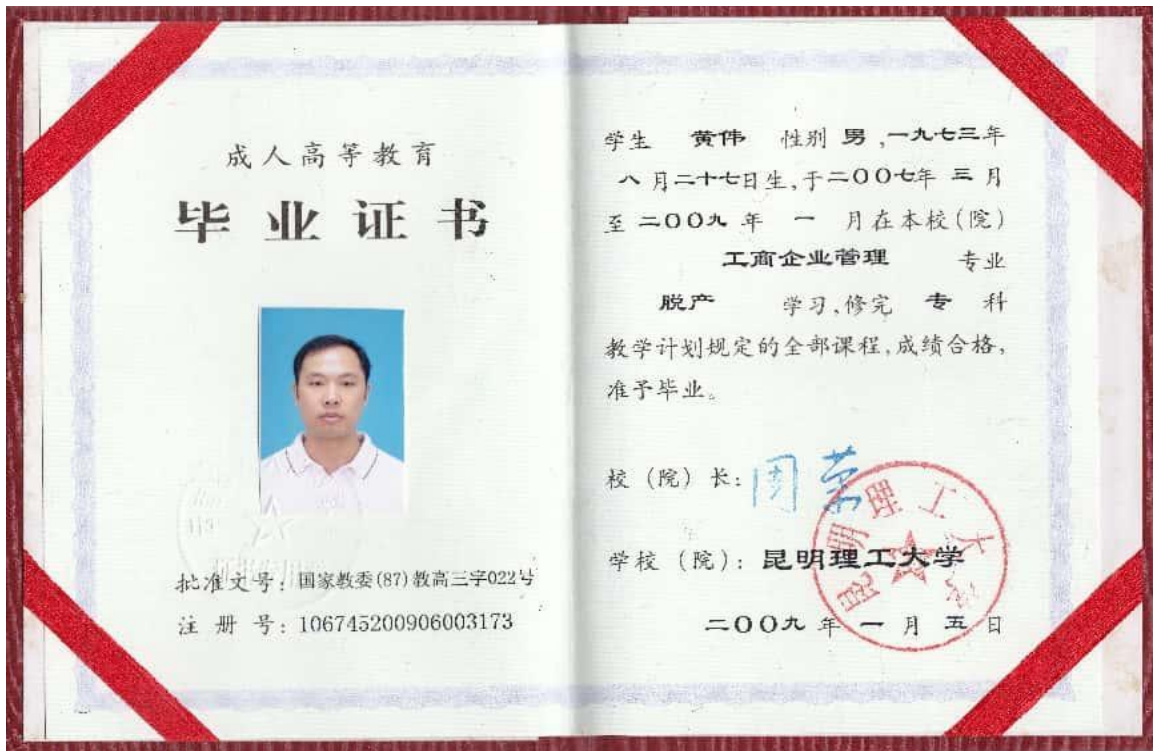 成人高等教育
毕业证书
批准文号：国家教委(87)教高三字022号
注册号：106745200906003173
学生 黄伟 性别 男，一九七三年
八月二十七日生，于二〇〇七年 三 月
至 二〇〇九 年 一 月在本校(院)
工商企业管理 专业
脱产 学习，修完 专 科
教学计划规定的全部课程，成绩合格，
准予毕业。
校（院）长：周荣
学校（院）：昆明理工大学
昆明理工大学
二〇〇九 年 一 月 五 日